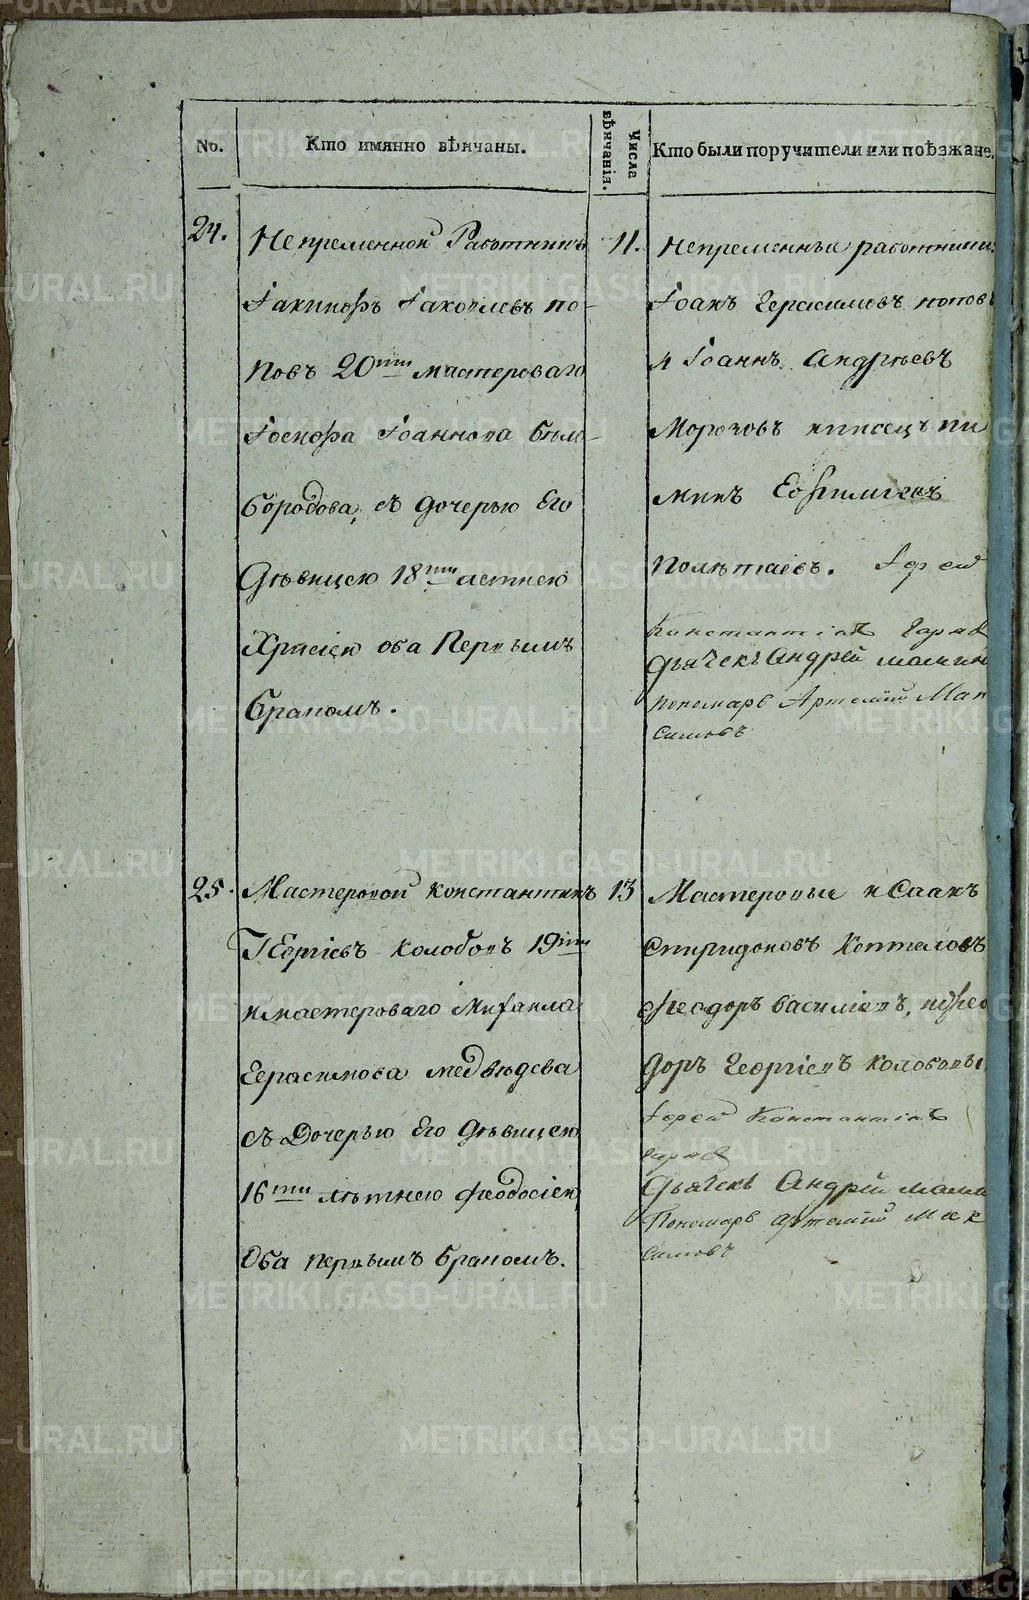 No.
Кто имянно вѣнчаны.
Числа вѣнчанія.
Кто были поручители или поѣзжане.
24.
Непременной Работникъ
Іакинфъ Іаковлевъ по-
повъ 20ти мастероваго
Іосифа Іоаннова бѣло-
бородова, съ дочерью Его
Дѣвицею 18ти летнею
оба Первымъ
бракомъ.
11.
Непременные работники
Іоанъ Герасимовъ попов
и Іоаннъ Андрѣевъ
Морозовъ и писецъ пи
минъ
Полѣтаевъ. Іерей
Константінъ
Дьячекъ Андрей
пономарь Артемій Мак
симовъ
25.
Мастеровой константинъ
ГЕоргіевъ колобовъ 19ти
и мастероваго Михаила
Герасимова медвѣдева
съ Дочерью Его Дѣвицею
16ти лѣтнею феодосіею
Оба первымъ бракомъ.
13
Мастеровые иСаакъ
Спиридоновъ Коптеловъ
феодоръ василіевъ, ифео
доръ Георгіевъ колобовы
Іерей Константінъ
Дьячекъ Андрей
Пономарь Артемій Мак
симовъ
METRIKI.GASO-URAL.RU